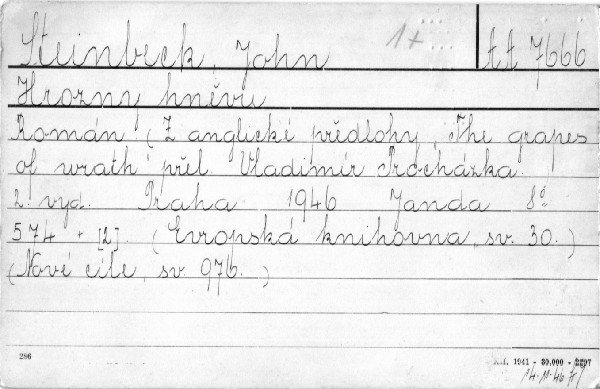 Steinbeck, John 1+ tt 7666
Hrozny hněvu
Román (Z anglické předlohy „The grapes
of wrath" přel. Vladimír Procházka.
2. vyd. Praha 1946 Janda 8°
574 + [2]. (Evropská knihovna, sv. 30.)
(Nové cíle, sv. 976.)
286
1941 - 30.000 -